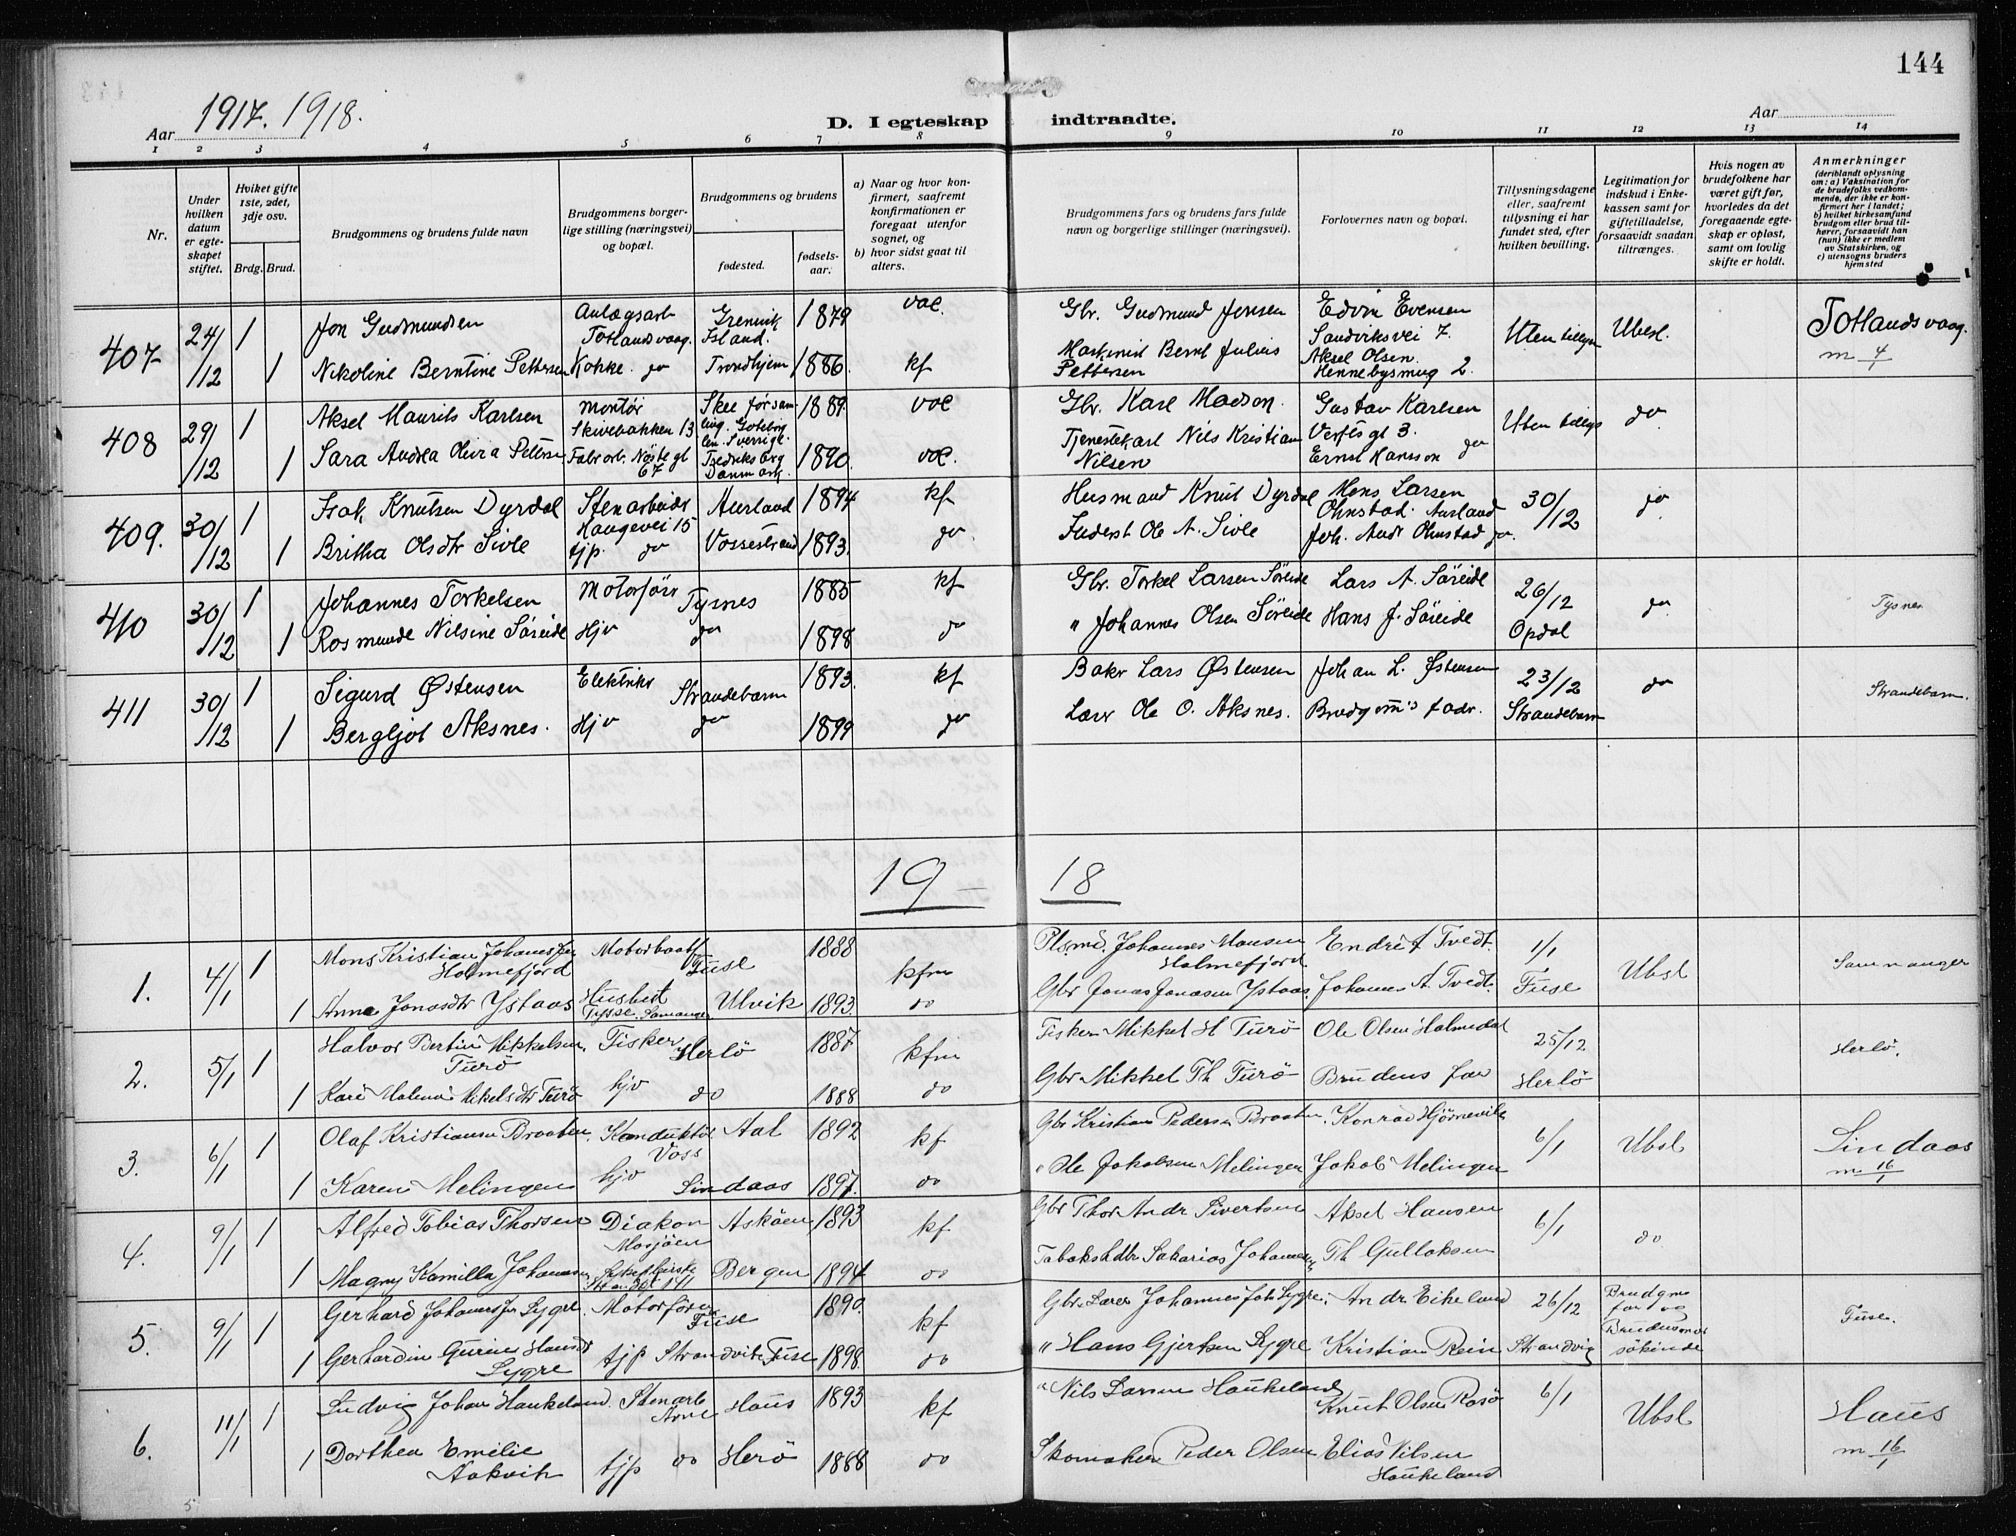 144
Aar 1917. 1918.
D. I egteskap indtraadte.
Aar
1 2 3 4 5 6 7 8 9 10 11 12 13 14
Nr.
Under hvilken datum er egteskapet stiftet.
Hviket gifte 1ste, 2det, 3dje osv.
Brdg. Brud.
Brudgommens og brudens fulde navn
Brudgommens borgerlige stilling (næringsvei) og bopæl.
Brudgommens og brudens
fødested.
fødselsaar.
a) Naar og hvor konfirmert, saafremt konfirmationen er foregaat utenfor sognet, og
b) hvor sidst gaat til alters.
Brudgommens fars og brudens fars fulde navn og borgerlige stillinger (næringsvei).
Forlovernes navn og bopæl.
Tillysningsdagene eller, saafremt tillysning ei har fundet sted, efter hvilken bevilling.
Legitimation for indskud i Enkekassen samt for giftetilladelse, forsaavidt saadan tiltrænges.
Hvis nogen av brudefolkene har været gift før, hvorledes da det foregaaende egteskap er opløst, samt om lovlig skifte er holdt.
Anmerkninger
(deriblandt oplysning om: a) Vaksination for de brudefolks vedkommende, der ikke er konfirmert her i landet;
b) hvilket kirkesamfund brudgom eller brud tilhører, forsaavidt han (hun) ikke er medlem av Statskirken, og
c) utensogns bruders hjemsted
407 24/12 1 Jon Gudmundsen Anlægsarb Totlandsvaag. Grenivik Island. 1879 vac. Gbr. Gudmund Jonsen Edvin Evensen Sandviksvei 7. Uten tillysn Ubesl. Totlandsvaag. m 4
1 Nikoline Berntine Pettersen Kokke. do Trondhjem 1886. kf Maskinist Bernt Julius Pettersen Aksel Olsen. Hennebysmug 2.
408 29/12 1 Aksel Maurits Karlsen Montør Skivebakken 13 Skee forsamling. Gøteborg len. Sverige. 1889. vac Gbr. Karl Madson. Gustav Karlsen Verftsgt 3. Uten tillys do
1 Sara Andrea Olivia Petersen Fabr.arb. Nøstegt 67 Fredriksberg Danmark. 1890. vac. Tjenestekarl Nils Kristian Nilsen Ernst Hansson do
409. 30/12 1 Isak Knutsen Dyrdal Stenarbeider Haugevei 15 Aurland 1894 kf Husmand Knut Dyrdal Mons Larsen Ohnstad. Aurland 30/12 do
1 Britha Olsdtr Sivle tjp. do Vossestrand 1893. do. Inderst Ole A. Sivle Joh. Andr Ohnstad do.
410 30/12 1 Johannes Torkelsen Motorfører Tysnes 1885 kf Gbr. Torkel Larsen Søreide Lars A. Søreide 26/12 Opdal do Tysnes
1 Rosmunde Nilsine Søreide Hjv do 1898 do " Johannes Olsen Søreide Hans J. Søreide
411 30/12 1 Sigurd Østensen Elektriker Strandebarm 1893. kf Baker Lars Østensen Johan L. Østensen 23/12 Strandebarm do Strandebarm.
1 Bergljot Aksnes. Hjv do 1899 do Lærer Ole O. Aksnes. Brudgom's fader.
19 – 18
1. 4/1 1 Mons Kristian Johannesen Holmefjord Motorbaatf Fuse 1888 kfm Plsmd. Johannes Monsen Holmefjord Endre A Tvedt. 1/1 Fuse Ubsl Sammanger
1 Anna Jonasdtr Ystaas Husbest Tysse. Samanger Ulvik 1893. do Gbr Jonas Jonasen Ystaas. Johannes A Tvedt.
2. 5/1 1 Halvor Bertin Mikkelsen. Turø Fisker Herlø 1887 kfm Fisker Mikkel H Turø Ole Olsen Holmedal 25/12 Herlø Herlø.
1 Kari Malena Mikelsdtr Turø hjv do 1888 do Gbr Mikkel Th Turø Brudens far
3. 6/1 1 Olaf Kristiansen Braaten Konduktør Voss Aal 1892 kf Gbr Kristian Pedersen Braaten. Konrad Hjørnevik 6/1 Ubsl Lindaas m 16/1
1 Karen Melingen hjv Lindaas 1897. do " Ole Jakobsen Melingen Jakob Melingen
4. 9/1 1 Alfred Tobias Thorsen Diakon Mosjøen Askøen 1893 kf Gbr Thor Andr Sivertsen Aksel Hansen 6/1 do
1 Magny Kamilla Johannesen 141 Bergen 1894 do Tobakshdlr Sakarias Johannesen Th Gullaksen
5. 9/1 1 Gerhard Johannesen Lygre. Motorfører Fuse 1890. kf Gbr. Lærer Johannes Joh Lygre. Andr Eikeland 26/12 Strandvig Brudgms far og Brudens mor søkende Fuse.
1 Gerhardin Gurine Hansdtr Lygre tjp Strandvik Fuse 1898. do " Hans Gjertsen Lygre Kristian Rein
6. 11/1 1 Ludvig Johan Haukeland. Stenarb Arne Haus 1893 kf " Nils Larsen Haukeland Knut Olsen Rosø 6/1 Ubsl Haus m 16/1
1 Dorthea Emilie Aakvik tjp do Herø 1888 do Skomaker Peder Olsen Elias Nilsen Haukeland
5